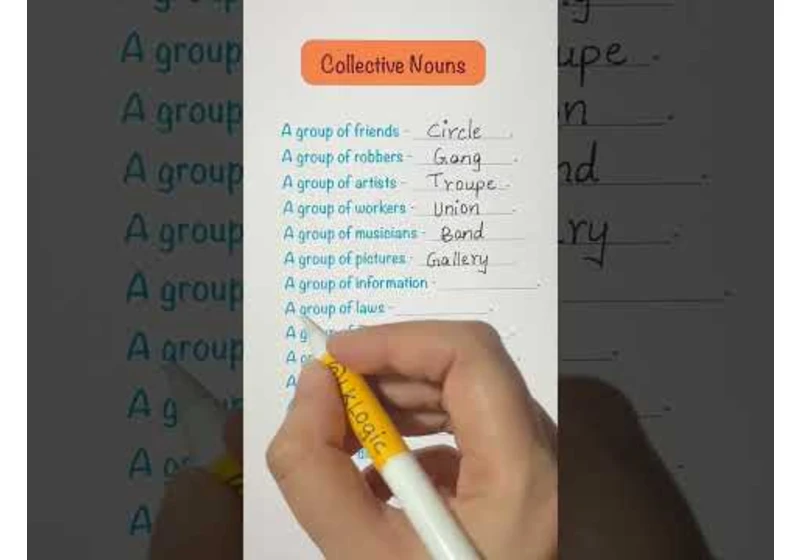 Collective Nouns
A group of friends - Circle.
A group of robbers - Gang.
A group of artists - Troupe.
A group of workers - Union.
A group of musicians - Band
A group of pictures - Gallery
A group of information - .
A group of laws - .
A g
A
A
@LKLogic